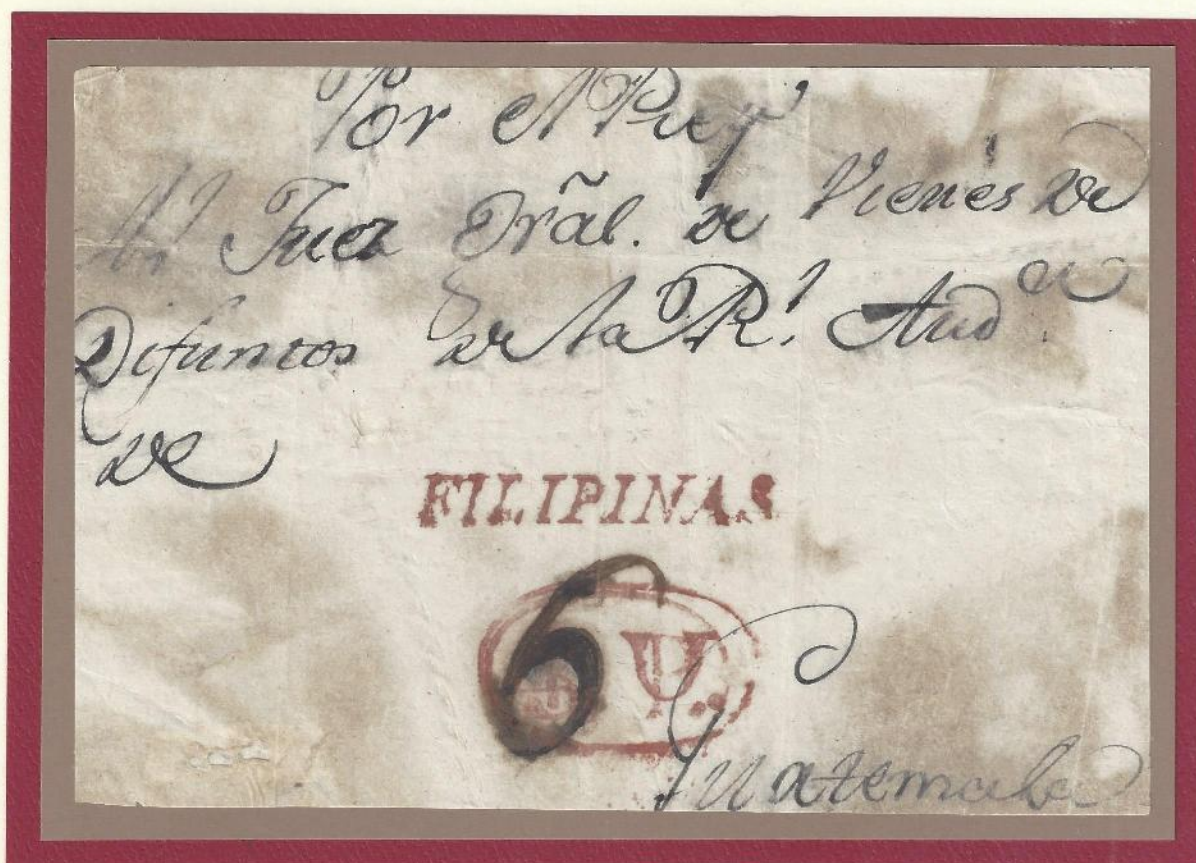 Por el Rey
Al Juez Grãl. de Vienes de
Difuntos de la Rl. Auda
de
FILIPINAS
6
Y.
Guatemala